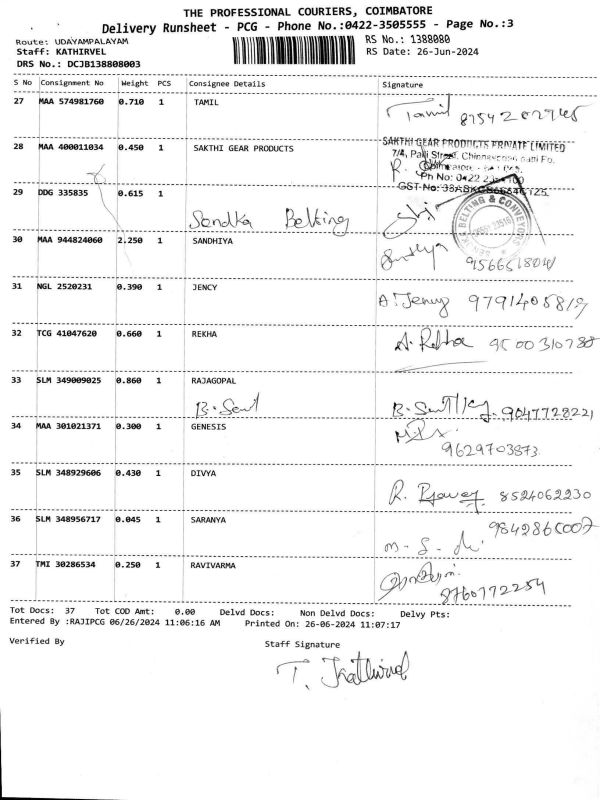 THE PROFESSIONAL COURIERS, COIMBATORE
Delivery Runsheet - PCG - Phone No.:0422-3505555 - Page No.:3
Route: UDAYAMPALAYAM
Staff: KATHIRVEL
DRS No.: DCJB138808003
RS No.: 1388080
RS Date: 26-Jun-2024
S No Consignment No Weight PCS Consignee Details Signature
27 MAA 574981760 0.710 1 TAMIL
Tamil 8754202945
28 MAA 400011034 0.450 1 SAKTHI GEAR PRODUCTS
SAKTHI GEAR PRODUCTS PRIVATE LIMITED
29 DDG 335835 0.615 1
Sandka Belting
BELTING & CONVEYORS
30 MAA 944824060 2.250 1 SANDHIYA
31 NGL 2520231 0.390 1 JENCY
A. Jency 9791405819
32 TCG 41047620 0.660 1 REKHA
A. Rekha 9500310788
33 SLM 349009025 0.860 1 RAJAGOPAL
9047728221
34 MAA 301021371 0.300 1 GENESIS
9629703873
35 SLM 348929606 0.430 1 DIVYA
R. 8524062230
36 SLM 348956717 0.045 1 SARANYA
37 TMI 30286534 0.250 1 RAVIVARMA
8760772254
Tot Docs: 37 Tot COD Amt: 0.00 Delvd Docs: Non Delvd Docs: Delvy Pts:
Entered By :RAJIPCG 06/26/2024 11:06:16 AM Printed On: 26-06-2024 11:07:17
Verified By Staff Signature
T. Kathirvel